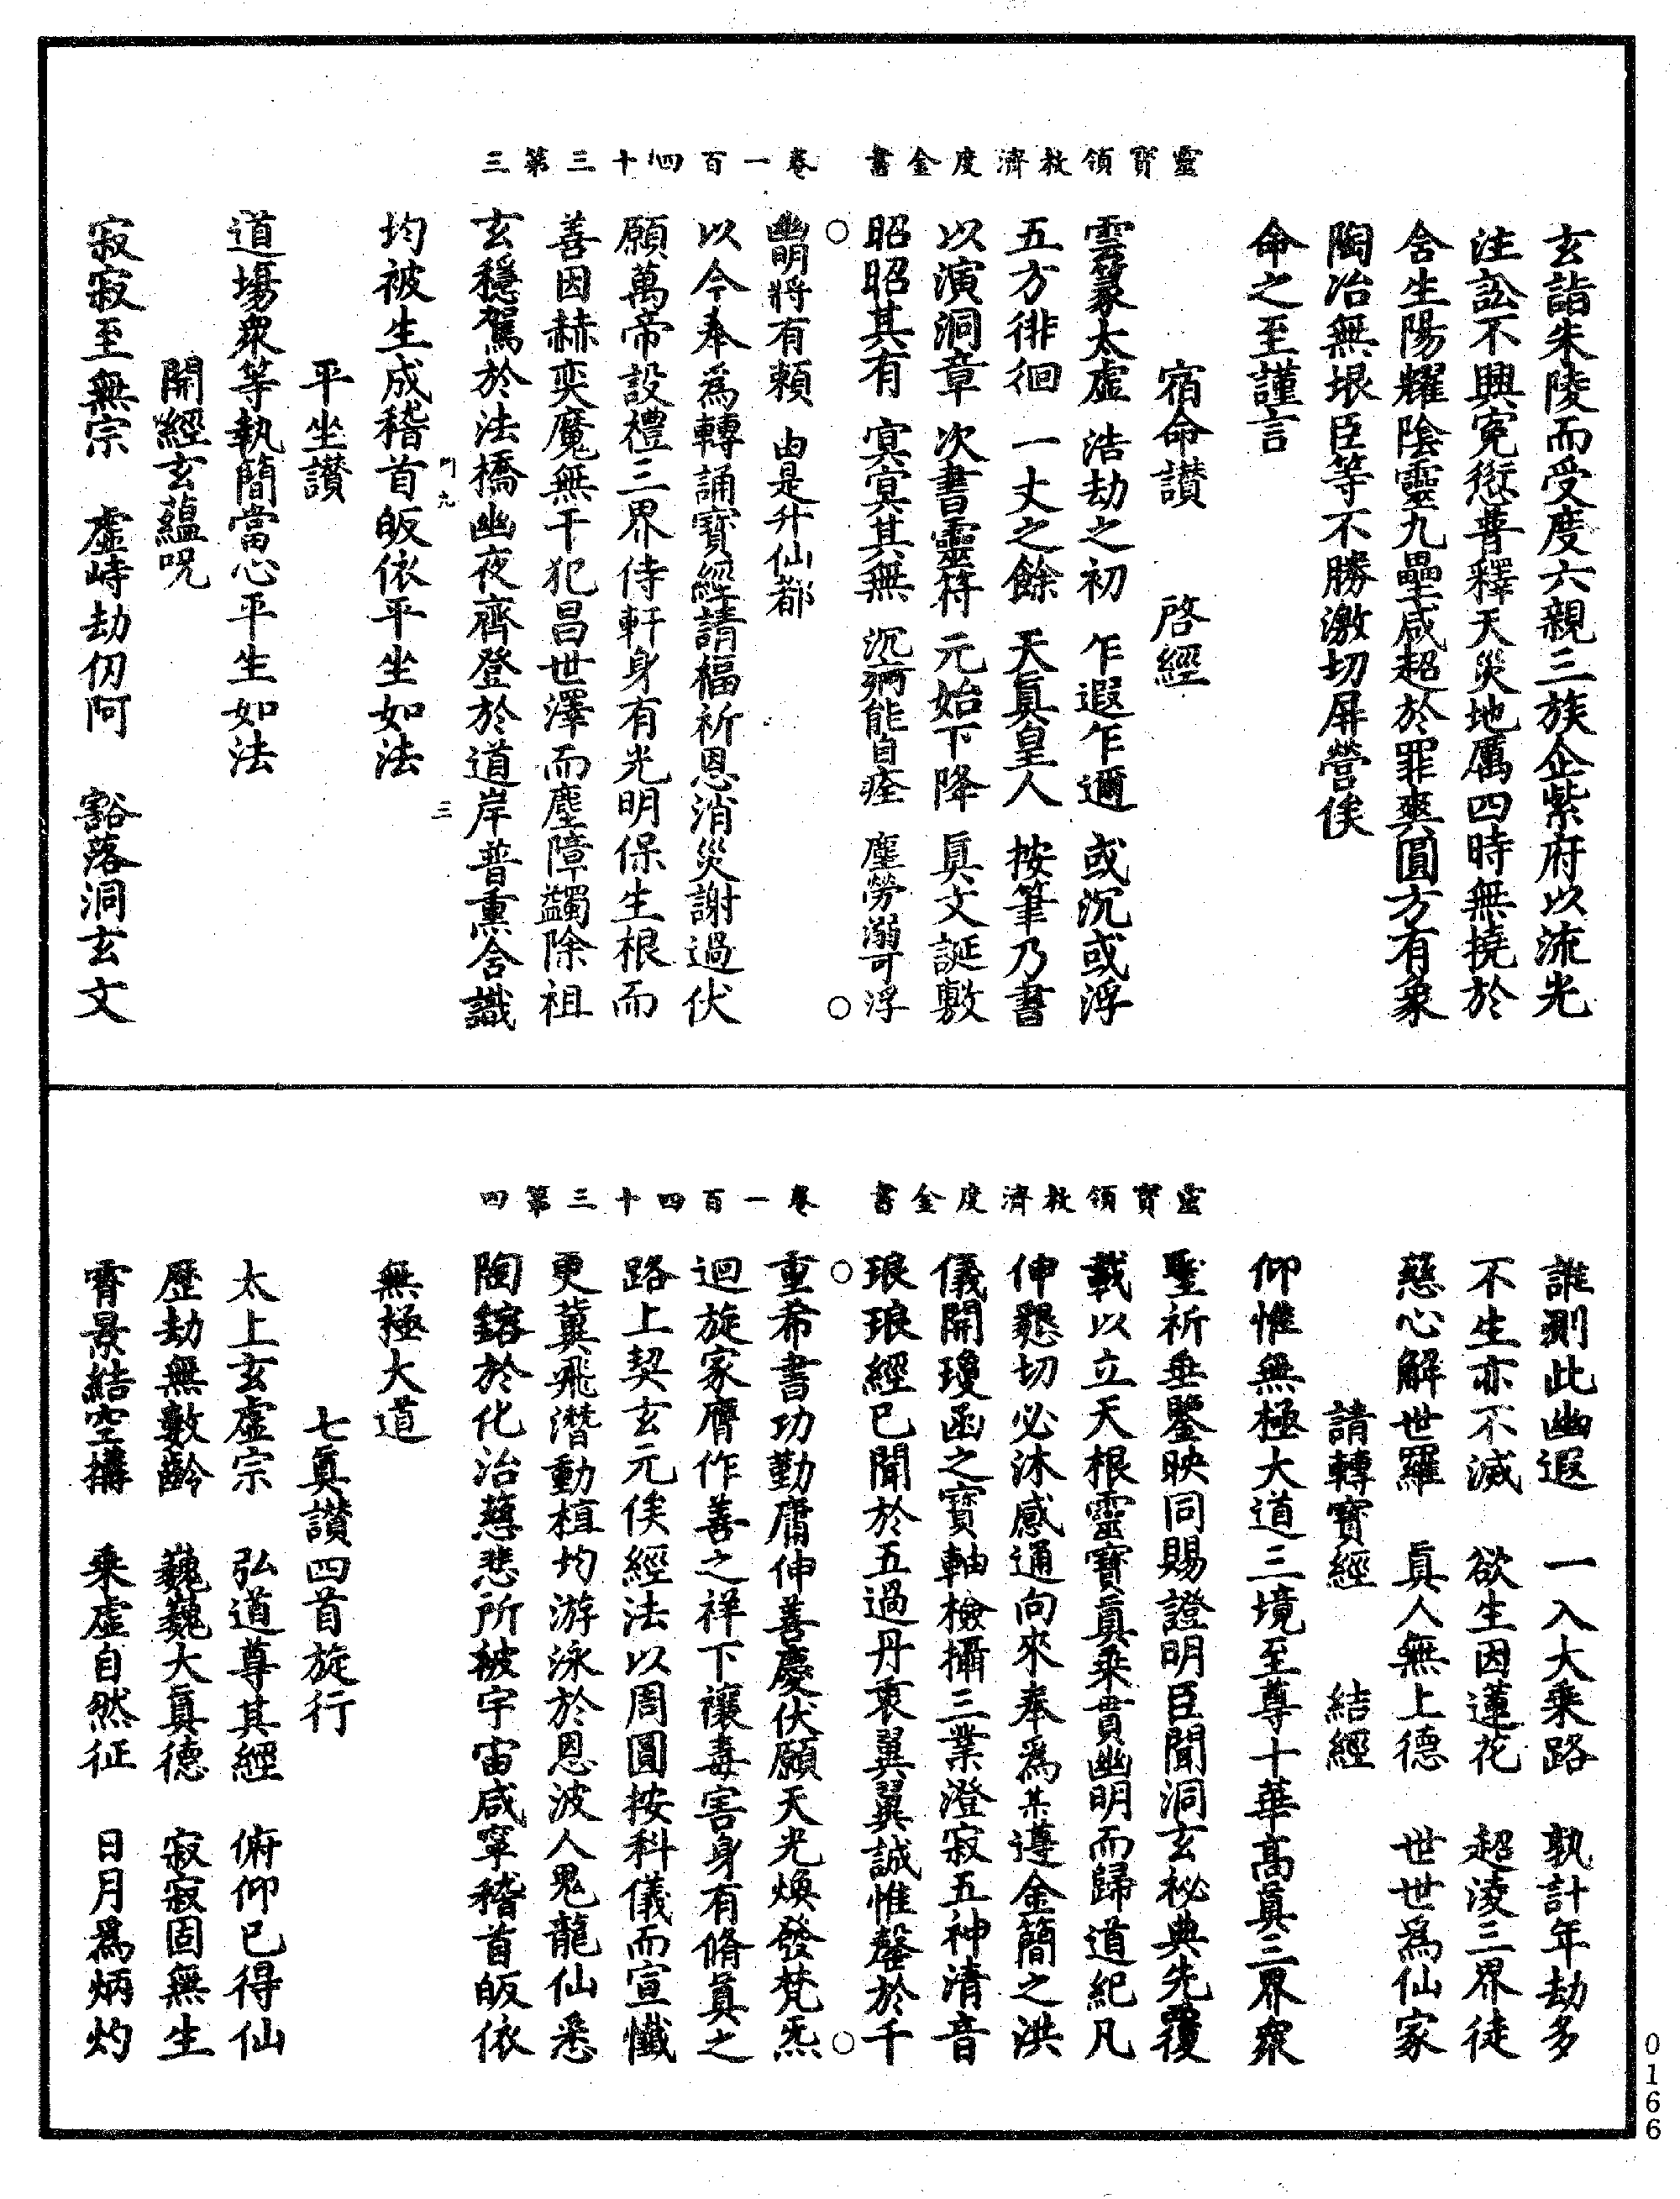 靈寶領教濟度金書　卷一百四十三第三
玄詣朱陵而受度六親三族企紫府以流光
注訟不興寃愆普釋天災地厲四時無撓於
含生陽耀陰靈九壘咸超於罪爽圓方有象
陶冶無垠臣等不勝激切屏營俟
命之至謹言
宿命讃　啓經
雲篆太虛　浩劫之初　乍遐乍邇　或沉或浮
五方徘徊　一丈之餘　天眞皇人　按筆乃書
以演洞章　次書靈符　元始下降　眞文誕敷
昭昭其有　冥冥其無　沉痾能自痊　塵勞溺可浮
○　○
幽明將有頼　由是升仙都
以今奉爲轉誦寳經請福祈恩消災謝過伏
願萬帝設禮三界侍軒身有光明保生根而
善因赫奕魔無干犯昌世澤而塵障蠲除祖
玄穩駕於法橋幽夜齊登於道岸普熏含識
三
均被生成稽首皈依平坐如法
平坐讃
道場衆等執簡當心平坐如法
開經玄蘊呪
寂寂至無宗　虛峙劫仞阿　豁落洞玄文
靈寶領教濟度金書　卷一百四十三第四
誰測此幽遐　一入大乘路　孰計年劫多
不生亦不滅　欲生因蓮花　超淩三界徒
慈心解世羅　眞人無上德　世世爲仙家
請轉寳經　結經
仰惟無極大道三境至尊十華高眞三界衆
聖祈垂鑒映同賜證明臣聞洞玄祕典先覆
載以立天根靈寶眞乘貫幽明而歸道紀凡
伸懇切必沐感通向來奉爲某遵金簡之洪
儀開瓊函之寳軸檢攝三業澄寂五神清音
琅琅經已聞於五過丹衷翼翼誠惟罄於千
○　○
重希書功勤庸伸善慶伏願天光煥發梵炁
迴旋家膺作善之祥下禳毒害身有脩眞之
路上契玄元俟經法以周圓按科儀而宣懺
更冀飛潛動植均游泳於恩波人鬼龍仙悉
陶鎔於化冶慈悲所被宇宙咸寧稽首皈依
無極大道
七眞讃四首旋行
太上玄虛宗　弘道尊其經　俯仰已得仙
歷劫無數齡　巍巍大眞德　寂寂固無生
霄景結空搆　乘虛自然征　日月爲炳灼
0166